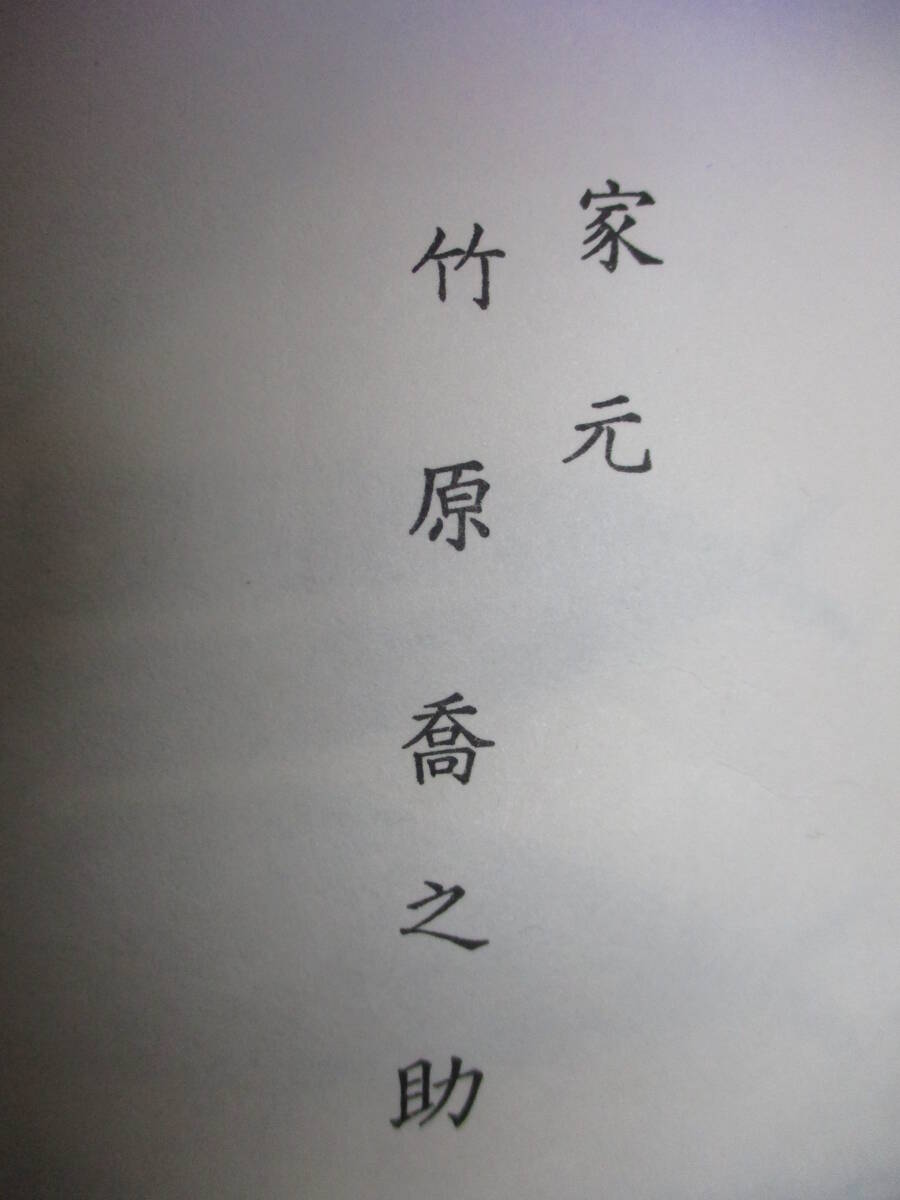 家元
竹原喬之助